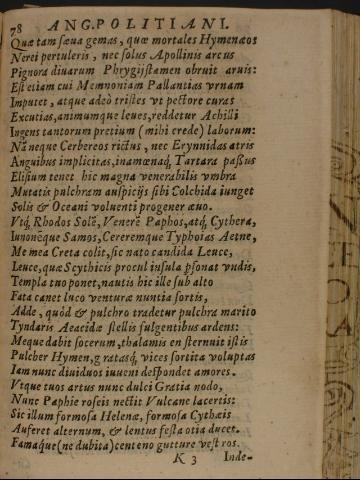 78 ANG. POLITIANI.
Quæ tam sæua gemas, quæ mortales Hymenæos
Nerei pertuleris, nec solus Apollinis arcus
Pignora diuarum Phrygijs tamen obruit aruis:
Est etiam cui Memnoniam Pallantias vrnam
Imputet, atque adeò tristes vt pectore curas
Excutias, animumque leues, reddetur Achilli
Ingens tantorum pretium (mihi crede) laborum:
Nã neque Cerbereos rictus, nec Erynnidas atris
Anguibus implicitas, inamœnaq́; Tartara passus
Elisium tenet hic magna venerabilis vmbra
Mutatis pulchram auspicijs sibi Colchida iunget
Solis & Oceani voluenti progener æuo.
Vtq́; Rhodos Solẽ, Venerẽ Paphos, atq́; Cythera,
Iunonẽque Samos, Cereremque Typhoias Aetne,
Me mea Creta colit, sic nato candida Leuce,
Leuce, quæ Scythicis procul insula psonat vndis,
Templa tuo ponet, nautis hic ille sub alto
Fata canet luco ventura nuntia sortis,
Adde, quòd & pulchro tradetur pulchra marito
Tyndaris Aeacidæ stellis fulgentibus ardens:
Meque dabit socerum, thalamis en sternuit istis
Pulcher Hymen, gratasq́; vices sortita voluptas
Iam nunc diuiduos iuueni despondet amores.
Vtque tuos artus nunc dulci Gratia nodo,
Nunc Paphie roseis nectit Vulcane lacertis:
Sic illum formosa Helenæ, formosa Cythæis
Auferet alternum, & lentus festa otia ducet.
Famaque (ne dubita) centeno gutture vestros.
K 3 Inde-